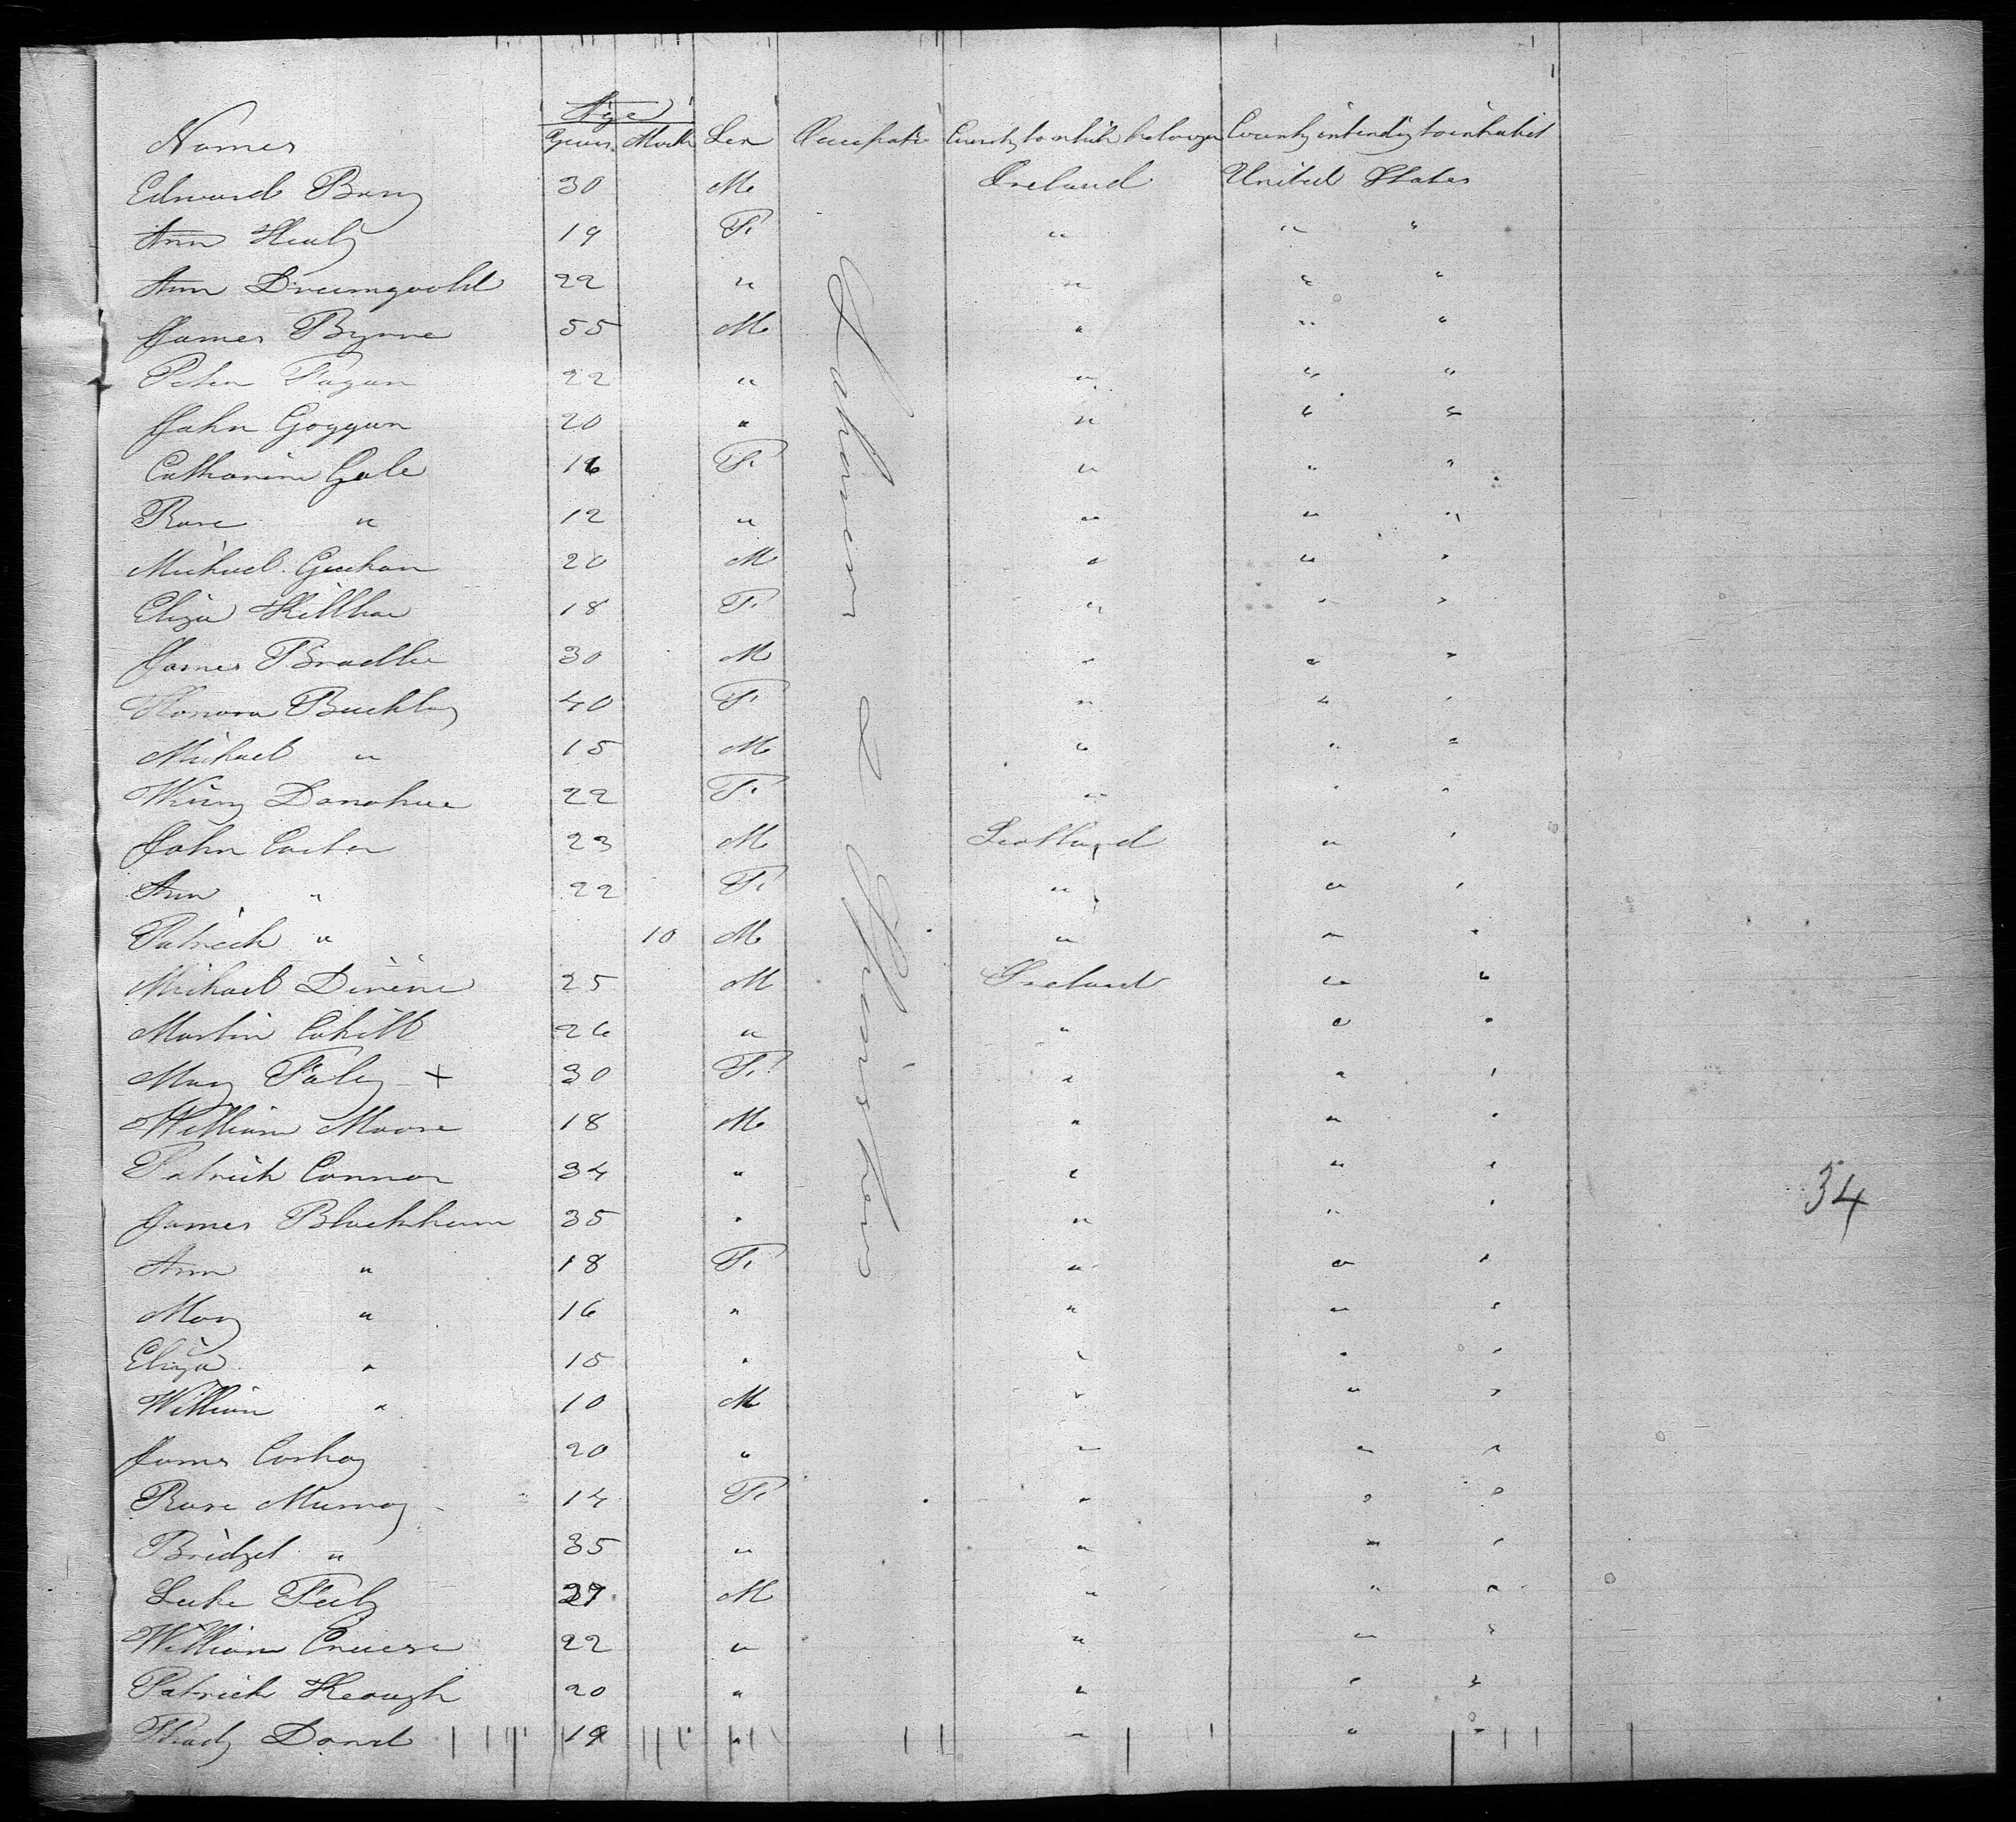 Names Age Years Month Sex Occupati Country to which belongs Country intending to inhabit
Edward Barry 30 M Ireland United States
Ann Healy 19 F " " "
Ann Drumgoold 22 " " " "
James Byrne 55 M " " "
Peter Fagan 22 " " " "
John Goggan 20 " " " "
Catharine Gale 16 F " " "
Rose " 12 " " " "
Michael Geehan 20 M " " "
Eliza Killbae 18 F " " "
James Bradlee 30 M " " "
Honora Buckley 40 F " " "
Michael " 15 M " " "
Winny Donohue 22 F " " "
John Carter 23 M Scotland " "
Ann " 22 F " " "
Patrick " 10 M " " "
Michael Divine 25 M Ireland " "
Martin Cahill 26 " " " "
Mary Foley + 30 F " " "
William Moore 18 M " " "
Patrick Connor 34 " " " "
James Blackham 35 " " " "
Ann " 18 F " " "
Mary " 16 " " " "
Eliza " 15 " " " "
William " 10 M " " "
James Coskay 20 " " " "
Rose Murray 14 F " " "
Bridget " 35 " " " "
Luke Feely 27 M " " "
William Cruese 22 " " " "
Patrick Keough 20 " " " "
Thady Dond 19 " " " "
Laborers & Spinsters
34